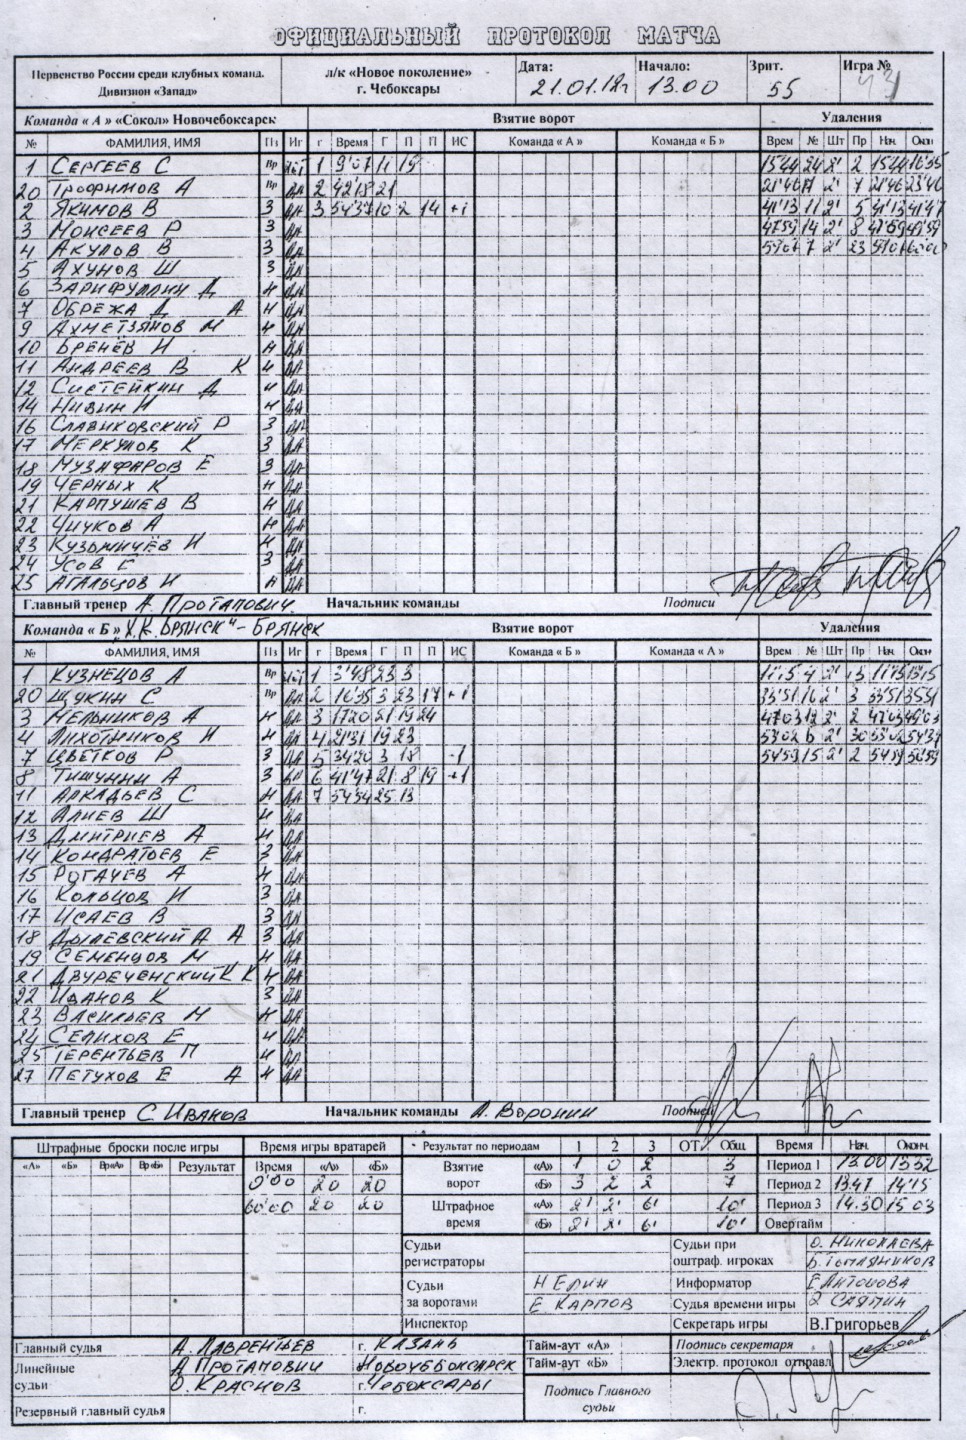 ОФИЦИАЛЬНЫЙ ПРОТОКОЛ МАТЧА
Первенство России среди клубных команд. Дивизион «Запад» л/к «Новое поколение» г. Чебоксары Дата: 21.01.12г Начало: 13.00 Зрит. 55 Игра №
Команда « А » «Сокол» Новочебоксарск Взятие ворот Удаления
№ ФАМИЛИЯ, ИМЯ Пз Иг г Время Г П П ИС Команда « А » Команда « Б » Врем № Шт Пр Нач. Окон
1 СЕРГЕЕВ С Вр 1 9'07 11 19 15'44 24 2' 2 15'44 16'35
20 ТРОФИМОВ А Вр ДА 2 42'18 21 21'46 2' 7 21'46 23'46
2 ЯКИМОВ В З ДА 3 54'37 10 2 14 +1 41'13 11 2' 5 41'13 41'47
3 МОИСЕЕВ Р З ДА 47'59 14 2' 8 47'59 49'59
4 АКУЛОВ В З ДА 7 2' 23
5 АХУНОВ Ш З ДА
6 ЗАРИФУЛЛИН Д Н ДА
7 ОБРЕЖА Д А Н ДА
9 АХМЕТЗЯНОВ М Н ДА
10 БРЕНЁВ И Н ДА
11 АНДРЕЕВ В К Н ДА
12 СИСТЕЙКИН Д Н ДА
14 НИВИН И Н ДА
16 СЛАВИКОВСКИЙ Р З ДА
17 МЕРКУЛОВ К З ДА
18 МУЗАФАРОВ Е З ДА
19 ЧЕРНЫХ К Н ДА
21 КАРПУШЕВ В Н ДА
22 ЧИЧКОВ А Н ДА
23 КУЗЬМИЧЁВ И Н ДА
24 УСОВ С З ДА
25 АГАЛЬЦОВ И Н ДА
Главный тренер А. ПРОТАПОВИЧ. Начальник команды Подписи
Команда « Б » Х.К. БРЯНСК" - БРЯНСК Взятие ворот Удаления
№ ФАМИЛИЯ, ИМЯ Пз Иг г Время Г П П ИС Команда « Б » Команда « А » Врем № Шт Пр Нач. Окон
1 КУЗНЕЦОВ А Вр 1 3'48 23 3 4 2'
20 ЩУКИН С Вр ДА 2 16'35 3 23 17 +1 33'51 16 2' 3 33'51 35'51
3 МЕЛЬНИКОВ А Н ДА 3 17'20 21 19 24 47'03 12 2' 2 47'03 49'03
4 ЛИХОТНИКОВ И Н ДА 4 21'31 19 23 53'02 6 2' 30 53'02 54'37
7 ЦВЕТКОВ Р З ДА 5 34'20 3 18 -1 54'59 15 2' 2 54'59 56'59
8 ТИШУНИН А З ДА 6 41'47 21 8 19 +1
11 АРКАДЬЕВ С Н ДА 7 54'54 25 13
12 АЛИЕВ Ш Н ДА
13 ДМИТРИЕВ А Н ДА
14 КОНДРАТЬЕВ Е З ДА
15 РОГАЧЁВ А Н ДА
16 КОЛЬЦОВ И З ДА
17 ИСАЕВ В З ДА
18 ДЫЛЕВСКИЙ А А З ДА
19 СЕМЕНЦОВ М Н ДА
21 ДВУРЕЧЕНСКИЙ К К Н ДА
22 ИВАНОВ К З ДА
23 ВАСИЛЬЕВ М Н ДА
24 СЕЛИХОВ Е Н ДА
25 ТЕРЕНТЬЕВ П Н ДА
27 ПЕТУХОВ Е А Н ДА
Главный тренер С. ИВАНОВ Начальник команды А. ВОРОНИН Подписи
Штрафные броски после игры Время игры вратарей Результат по периодам 1 2 3 ОТ Общ. Время Нач. Оконч.
«А» «Б» Вр«А» Вр«Б» Результат Время «А» «Б» Взятие ворот «А» 1 0 2 3 Период 1 13.00 13.32
0'00 20 20 «Б» 3 2 2 7 Период 2 13.47 14.15
60'00 20 20 Штрафное время «А» 2' 2' 6' 10' Период 3 14.30 15.03
«Б» 2' 2' 6' 10' Овертайм
Судьи регистраторы Судьи при оштраф. игроках О. НИКОЛАЕВА
Б. ТОПЛЯНИКОВ
Судьи за воротами Н ЕРИН Информатор Е АНТОНОВА
Е КАРПОВ Судья времени игры
Инспектор Секретарь игры В.Григорьев
Главный судья А. ЛАВРЕНТЬЕВ г. КАЗАНЬ Тайм-аут «А» Подпись секретаря
Линейные судьи А ПРОТАПОВИЧ НОВОЧЕБОКСАРСК Тайм-аут «Б» Электр. протокол отправл
О. КРАСНОВ г. ЧЕБОКСАРЫ Подпись Главного судьи
Резервный главный судья г.